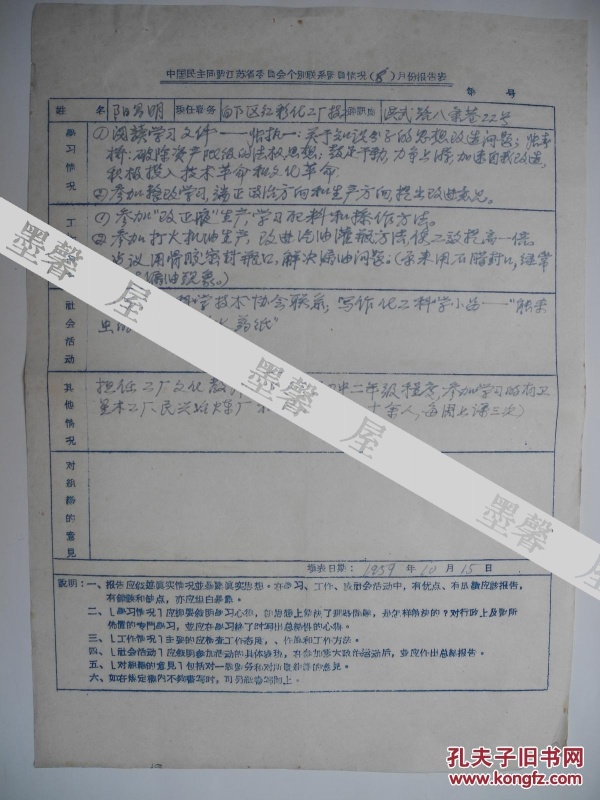 中国民主同盟江苏省委员会个别联系盟员情况(8)月份报告表
第 号
姓 名 阳名明 现任职务 白下区红彩化工厂技 洪武路八条巷22号
学习情况
①阅读学习文件——张执一:关于知识分子的思想改造问题;张春
桥:破除资产阶级的法权思想;鼓足干劲,力争上游,加速自我改造,
积极投入技术革命和文化革命。
②参加整改学习,端正政治方向和生产方向,提出改进意见。
工
①参加"改正液"生产,学习配料和操作方法。
②参加打火机油生产,改进汽油灌瓶方法使工效提高一倍。
建议用骨胶密封瓶口,解决漏油问题。(原来用石腊封口,经常
漏油现象。)
社会活动
学技术协会联系,写作化工科学小品——"
虫 纸"
其他情况
担任工厂文化教 初中二年级程度,参加学习的有卫
星木工厂、民兴 煤厂 十余人,每周上课三次)
对组织的意见
填表日期:1959年10月15日
说明:一、报告应根据真实情况並暴露真实思想。在学习、工作、及社会活动中,有优点、有成绩应该报告,
有错误和缺点,亦应坦白暴露。
二、〔学习情况〕应扼要叙明学习心得,如思想上解决了那些问题,是怎样解决的?对行政上及盟所
佈置的专门学习,並应在学习终了时写出总结性的心得。
三、〔工作情况〕主要的应检查工作态度、工作作风和工作方法。
四、〔社会活动〕应叙明参加活动的具体事项,在参加重大政治运动后,並应作出总结报告。
五、〔对组织的意见〕包括对一般盟务和对所联系盟员的意见。
六、如在规定栏内不够书写时,可另纸书写附上。
墨馨屋
墨馨屋
墨馨屋
孔夫子旧书网
www.kongfz.com